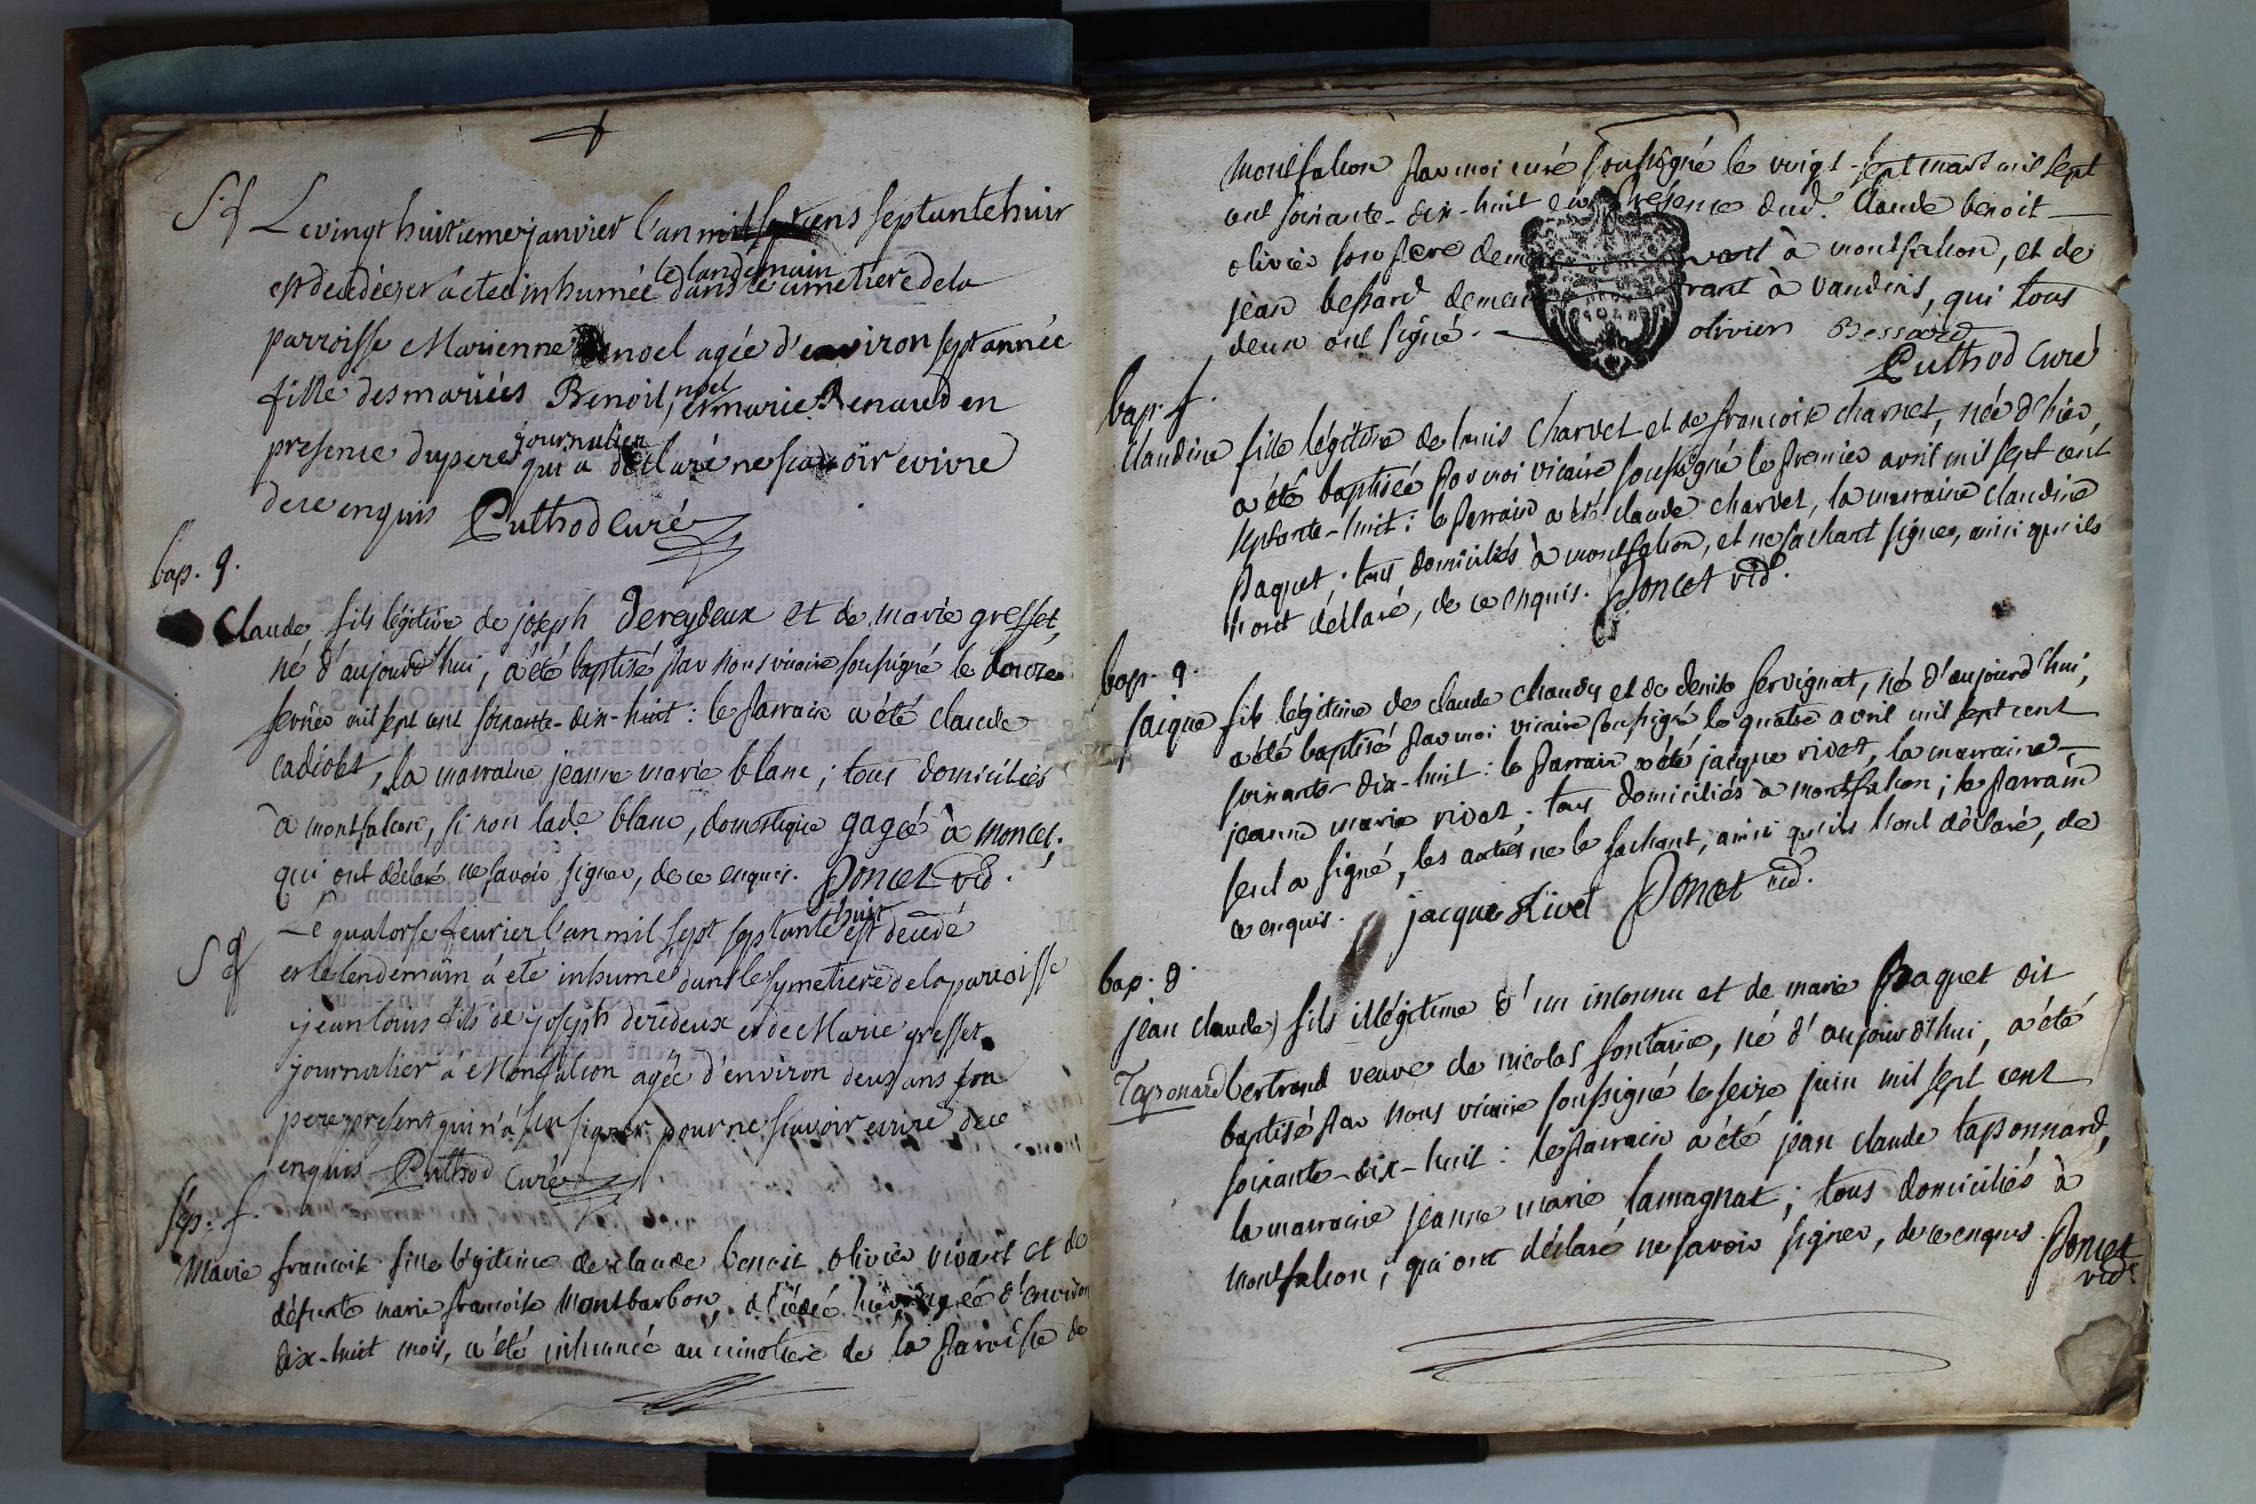 S. f
Le vingt huitieme janvier l'an mil sept cens septante huit
est decedée et a eté inhumée le landemain dans le cimetiere de la
parroisse Marienne noel agée d'environ sept année
fille des mariées Benoit noel, et marie Renaud en
presence du pere journalier qui a déclaré ne scavoir ecrire
de ce enquis Puthod Curé
bap. g.
Claude fils légitime de joseph dereydeux et de marie gresset,
né d'aujourd'hui, a été baptisé par nous vicaire soussigné le douze
fevrier mil sept cent soixante-dix-huit : le parrain a été claude
cadiolet, la marraine jeanne marie blanc ; tous domiciliés
à montfalcon, si non lad.e blanc, domestique gagée à moncet ;
qui ont déclaré ne savoir signer, de ce enquis. Poncet vic.
S g
Le quatorse feurier l'an mil sept septante huit est decedé
et le lendemain a eté inhumé dans le symetiere de la paroisse
jean louis fils de joseph deredeux et de Marie gresset
journalier a Monfalcon agée d'environ deux ans son
pere present qui n'a su signer pour ne scavoir ecrire de ce
enquis Puthod Curé
sep. f.
Marie francoise fille légitime de claude benoit olivier vivant et de
défunte marie francoise Montbarbon, décédée hier, agée d'environ
dix-huit mois, a été inhumée au cimetiere de la paroisse de
montfalcon par moi curé soussigné le vingt-sept mars mil sept
cent soixante-dix-huit en présence dud. Claude benoit
olivier son pere demeurant à montfalcon, et de
jean bessard demeurant à vandeins, qui tous
deux ont signé. olivier Bessard
Puthod Curé
bap. f.
Claudine fille légitime de louis Charvet et de francoise charnet, née d'hier,
a été baptisée par moi vicaire soussigné le premier avril mil sept cent
septante-huit : le parrain a été claude charvet, la marraine claudine
paquet ; tous domiciliés à montfalcon, et ne sachant signer, ainsi qu'ils
l'ont déclaré, de ce enquis. Poncet vic.
bap. g.
jacque fils légitime de claude chaudy et de denise servignat, né d'aujourd'hui,
a été baptisé par moi vicaire soussigné le quatre avril mil sept cent
soixante-dix-huit : le parrain a été jacque rivet, la marraine
jeanne marie rivet ; tous domiciliés à montfalcon ; le parrain
seul a signé, les autres ne le sachant, ainsi qu'ils l'ont déclaré, de
ce enquis. jacque Rivet Poncet vic.
bap. g.
jean claude) fils illégitime d'un inconnu et de marie paquet dit
Taponard bertrand veuve de nicolas fontaine, né d'aujourd'hui, a été
baptisé par nous vicaire soussigné le seize juin mil sept cent
soixante-dix-huit : le parrain a été jean claude taponnard,
la marraine jeanne marie lamagnat ; tous domiciliés à
montfalcon, qui ont déclaré ne savoir signer, de ce enquis. Poncet
vic.